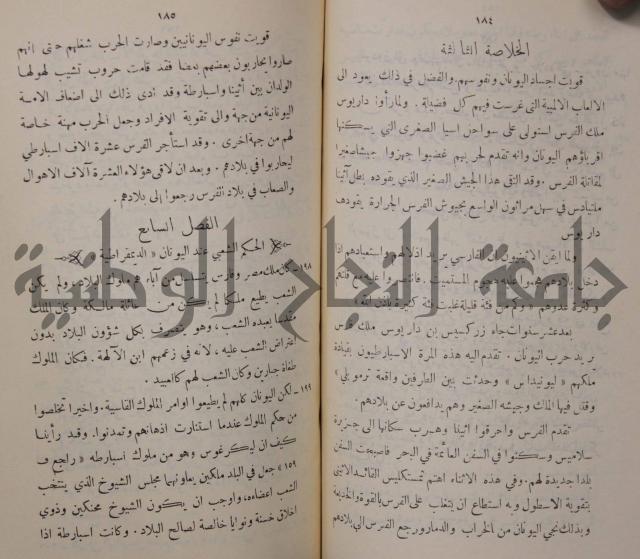 ١٨٤
الخلاصة الثالثة
قويت اجساد اليونان ونفوسهم. والفضل في ذلك يعود الى
الالعاب الالمبية التي غرست فيهم كل فضيلة. ولما رأوا داريوس
ملك الفرس استولى على سواحل اسيا الصغرى التي يسكنها
اقرباؤهم اليونان وانه تقدم لحربهم غضبوا جهزوا جيشا صغيرا
لمقاتلة الفرس. وقد التقى هذا الجيش الصغير الذي يقوده بطل أثينا
ملتيادس في سهل مراثون الواسع بجيوش الفرس الجرارة يقودها
داريوس
ولما ايقن الاثينيون ان الفارسي يريد اذلالهم واستعبادهم اذا
دخل بلادهم هجموا عليه هجوم المستميت. فانتصروا عليه مع قلتهم
وكثرة عدوهم «وكم من فئة قليلة غلبت فئة كثيرة باذن الله»
بعد عشر سنوات جاء زركسيس بن داريوس ملك فرس
يريد حرب اليونان. تقدم اليه هذه المرة الاسبارطيون بقيادة
ملكهم «ليونيداس» وحدثت بين الطرفين واقعة ترموبلي»
وقتل فيها الملك وجيشه الصغير وهم يدافعون عن بلادهم.
تقدم الفرس واحرقوا اثينا وهرب سكانها الى جزيرة
سلاميس وسكنوا في السفن العائمة في البحر فاصبحت السفن
بلدا جديدة لهم. وفي هذه الاثناء اهتم تمستكليس القائد الاثيني
بتقوية الاسطول وبه استطاع ان يتغلب على الفرس بالقوة والخديعة
وبذلك نجى اليونان من الخراب والدمار ورجع الفرس الى بلادهم
١٨٥
قويت نفوس اليونانيين وصارت الحرب شغلهم حتى انهم
صاروا يحاربون بعضهم بعضا فقد قامت حروب تشيب لهولها
الولدان بين أثينا واسبارطة وقد أدى ذلك الى اضعاف الامة
اليونانية من جهة والى تقوية الافراد وجعل الحرب مهنة خاصة
لهم من جهة اخرى. وقد استأجر الفرس عشرة الاف اسبارطي
ليحاربوا في بلادهم. وبعد ان لاقى هؤلاء العشرة آلاف الاهوال
والصعاب في بلاد الفرس رجعوا إلى بلادهم.
الفصل السابع
الحكم الشعبي عند اليونان «الديمقراطية»
١٩٨ــ كان ملك مصر وفارس يتسلسل من آباء هم ملوك البلاد، ولم يكن
الشعب يطيع ملكا لم يكن من عائلة مالكة وكان الملك
مقدسا يعبده الشعب، وهو يتصرف بكل شؤون البلاد بدون
اعتراض الشعب عليه، لانه في زعمهم ابن الآلهة. فكان الملوك
طغاة جبارين وكان الشعب لهم كالعبيد.
١٩٩ــ لكن اليونان كلهم لم يطيعوا اوامر الملوك القاسية. واخيرا تخلصوا
من حكم الملوك عندما استنارت اذهانهم وتمدنوا. وقد رأينا
كيف ان ليكرغوس وهو من ملوك اسبارطه «راجع ف
١٥٩» جعل في البلد ملكين يعاونهما مجلس الشيوخ الذي ينتخب
الشعب اعضاءه، واوجب ان يكون الشيوخ محنكين وذوي
اخلاق حسنة ونوايا خالصة لصالح البلاد. وكانت اسبارطة اذا
جامعة النجاح الوطنية